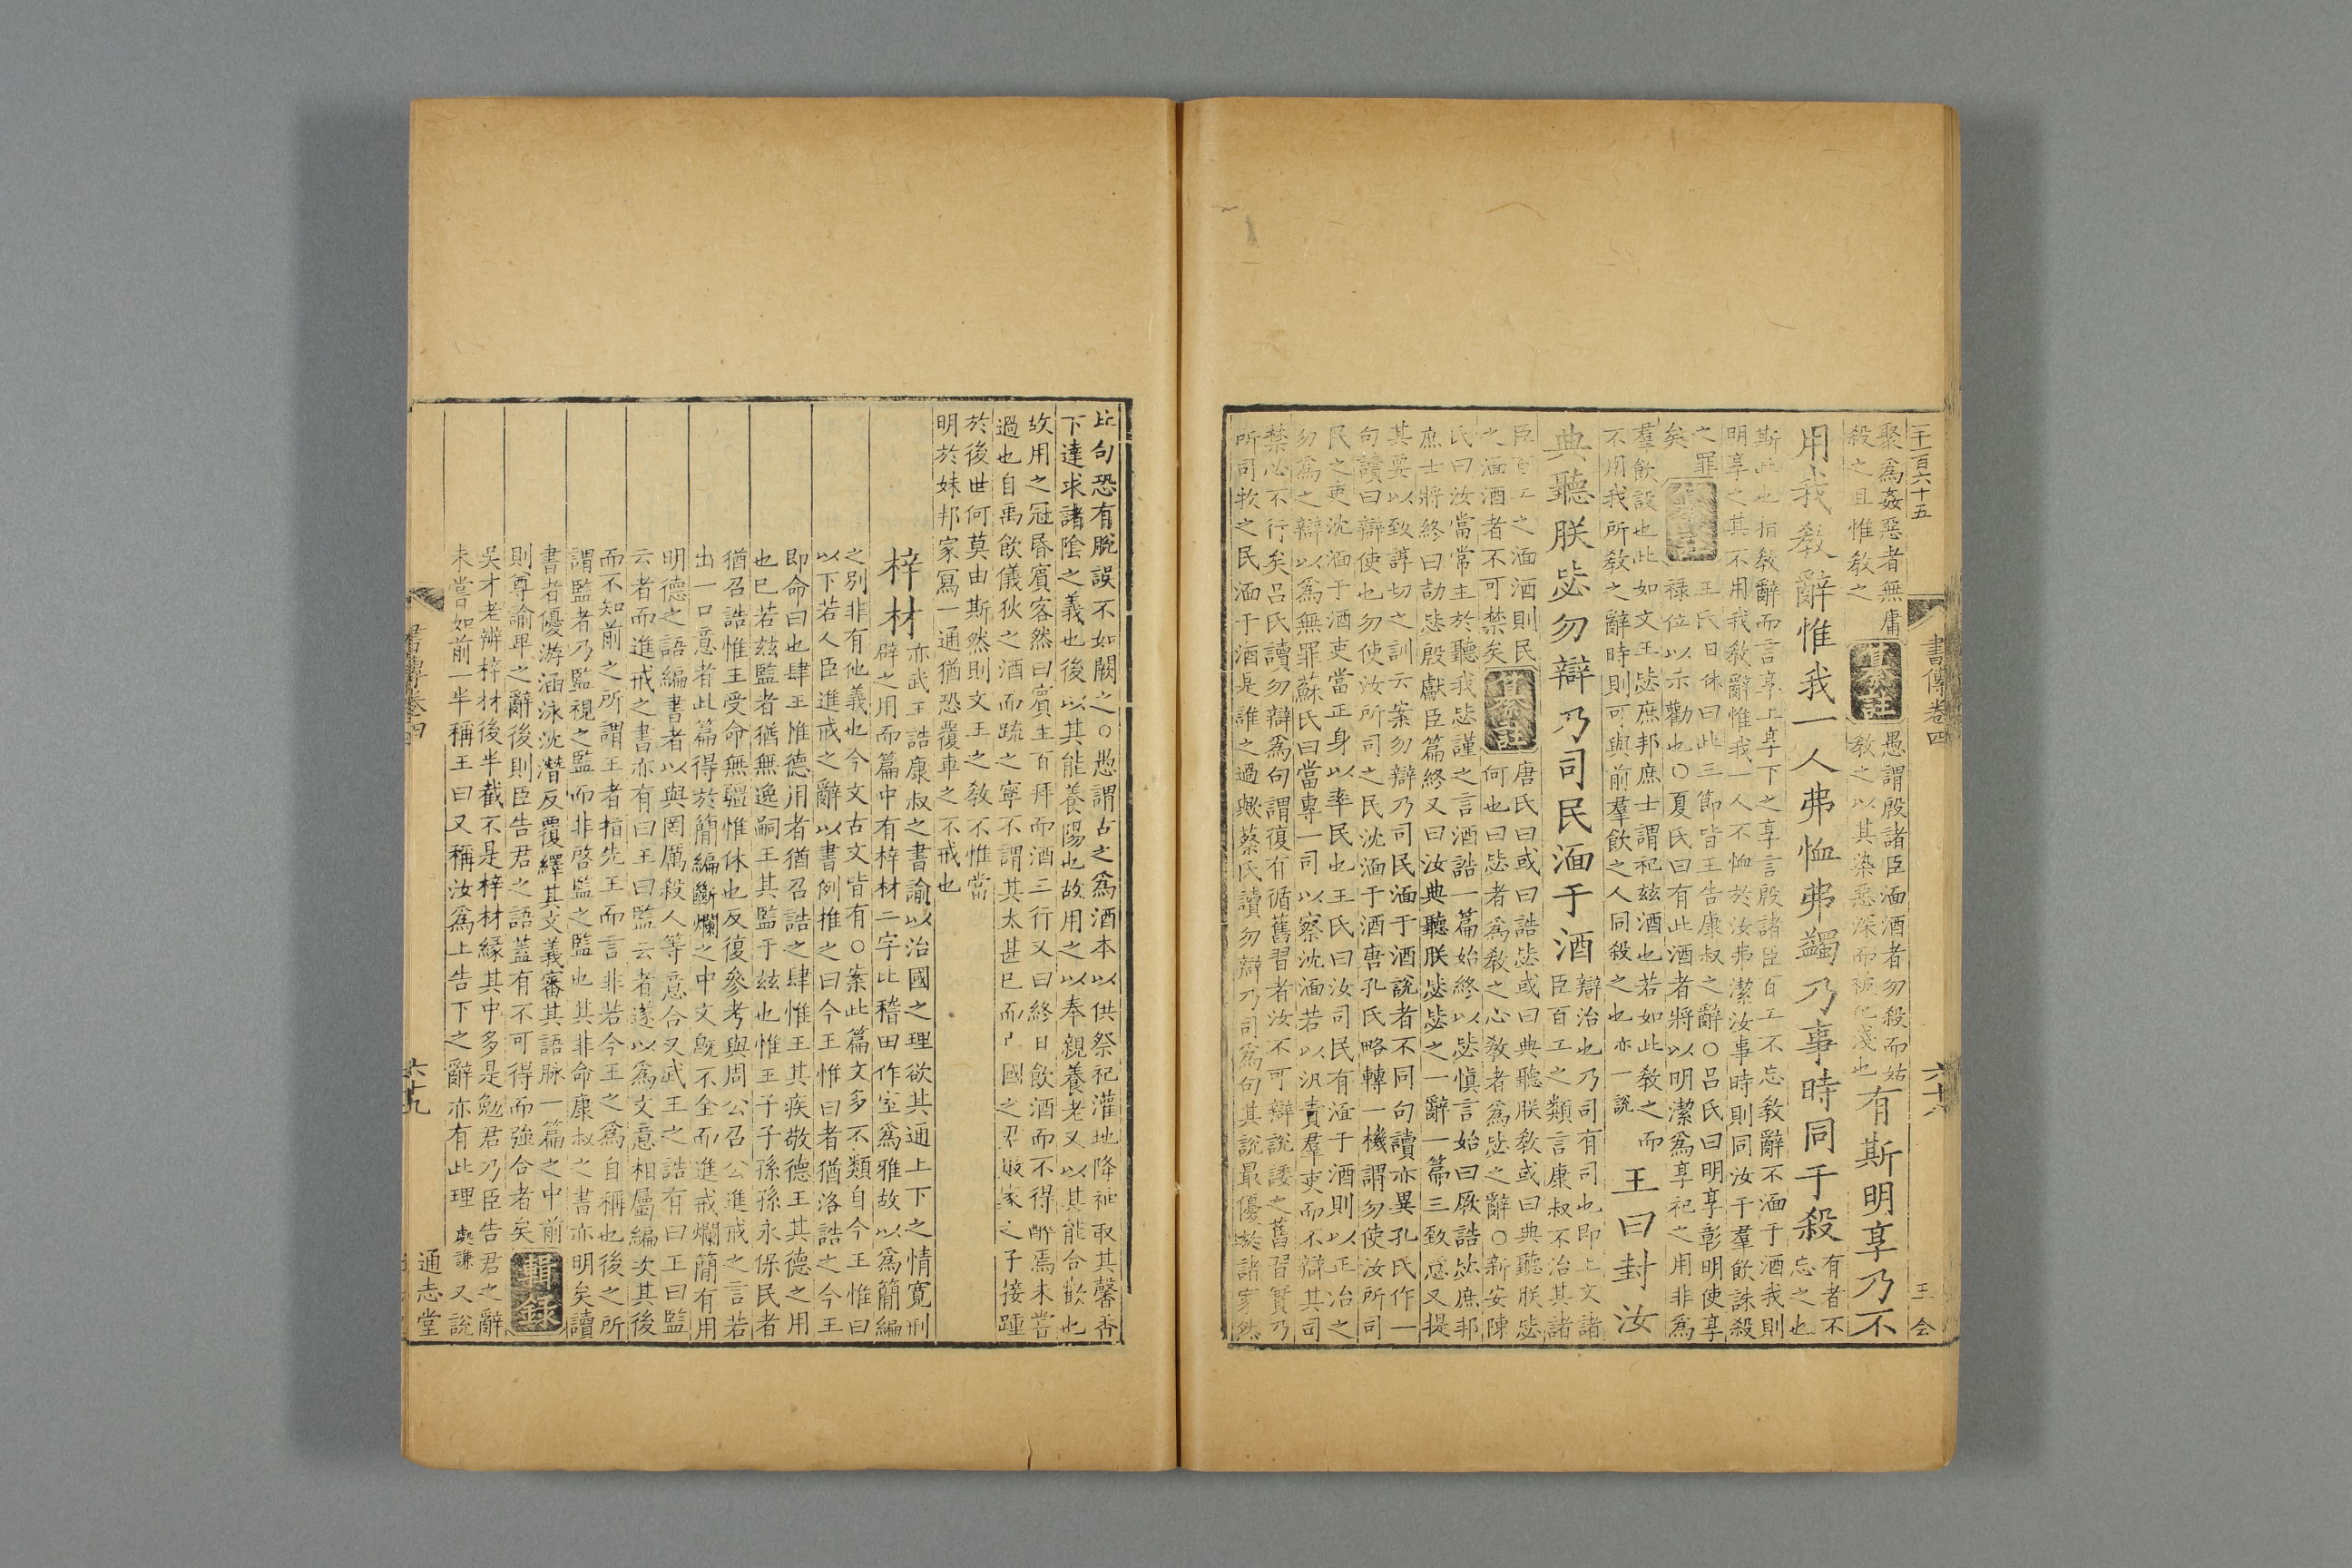 百六十五
書傳卷四
六十八
聚爲姦惡者無庸
殺之且惟敎之
纂註
愚謂殷諸臣湎酒者勿殺而姑
敎之以其染惡深而被化淺也
有斯明享乃不
用我敎辭惟我一人弗恤弗蠲乃事時同于殺
有者不
忘之也
斯此也指敎辭而言享上享下之享言殷諸臣百工不忘敎辭不湎于酒我則
明享之其不用我敎辭惟我一人不恤於汝弗潔汝事時則同汝于羣飮誅殺
之罪
矣
纂註
王氏曰休曰此三節皆王告康叔之辭○呂氏曰明享彰明使享
祿位以示勸也○夏氏曰有此酒者將以明潔爲享祀之用非爲
羣飮設也此如文王毖庶邦庶士謂祀玆酒也若如此敎之而
不用我所敎之辭時則可與前羣飮之人同殺之也亦一說
王曰封汝
典聽朕毖勿辯乃司民湎于酒
辯治也乃司有司也即上文諸
臣百工之類言康叔不治其諸
臣百工之湎酒則民
之湎酒者不可禁矣
纂註
唐氏曰或曰誥毖或曰典聽朕敎或曰典聽朕毖
何也曰毖者爲敎之心敎者爲毖之辭○新安陳
氏曰汝當常主於聽我毖謹之言酒誥一篇始終以毖愼言始曰厥誥毖庶邦
庶士將終曰劼毖殷獻臣篇終又曰汝典聽朕毖毖之一辭一篇三致意又提
其要以致諄切之訓云案勿辯乃司民湎于酒說者不同句讀亦異孔氏作一
句讀曰辯使也勿使汝所司之民沈湎于酒唐孔氏略轉一機謂勿使汝所司
民之吏沈湎于酒吏當正身以率民也王氏曰汝司民有湎于酒則以正治之
勿爲之辯以爲無罪蘇氏曰當專一司以察沈湎若以汎責羣吏而不辯其司
禁必不行矣呂氏讀勿辯爲句謂復有循舊習者汝不可辯說諉之舊習實乃
所司牧之民湎于酒是誰之過歟蔡氏讀勿辯乃司爲句其說最優於諸家然
比句恐有脫誤不如闕之○愚謂古之爲酒本以供祭祀灌地降神取其馨香
下達求諸陰之義也後以其能養陽也故用之以奉親養老又以其能合歡也
故用之冠昏賓客然曰賓主百拜而酒三行又曰終日飮酒而不得醉焉未嘗
過也自禹飮儀狄之酒而疏之寧不謂其太甚已而亡國之君敗家之子接踵
於後世何莫由斯然則文王之敎不惟當
明於妹邦家寫一通猶恐覆車之不戒也
梓材
亦武王誥康叔之書諭以治國之理欲其通上下之情寬刑
辟之用而篇中有梓材二字比稽田作室爲雅故以爲簡編
之別非有他義也今文古文皆有○案此篇文多不類自今王惟曰
以下若人臣進戒之辭以書例推之曰今王惟曰者猶洛誥之今王
即命曰也肆王惟德用者猶召誥之肆惟王其疾敬德王其德之用
也巳若玆監者猶無逸嗣王其監于玆也惟王子子孫孫永保民者
猶召誥惟王受命無疆惟休也反復參考與周公召公進戒之言若
出一口意者此篇得於簡編斷爛之中文旣不全而進戒爛簡有用
明德之語編書者以與罔厲殺人等意合又武王之誥有曰王曰監
云者而進戒之書亦有曰王曰監云者遂以爲文意相屬編次其後
而不知前之所謂王者指先王而言非若今王之爲自稱也後之所
謂監者乃監視之監而非啓監之監也其非命康叔之書亦明矣讀
書者優游涵泳沈潛反覆繹其文義審其語脉一篇之中前
則尊諭卑之辭後則臣告君之語蓋有不可得而強合者矣
輯錄
吳才老辨梓材後半截不是梓材緣其中多是勉君乃臣告君之辭
未嘗如前一半稱王曰又稱汝爲上告下之辭亦有此理
處謙
又說
書傳卷四
六十九
通志堂